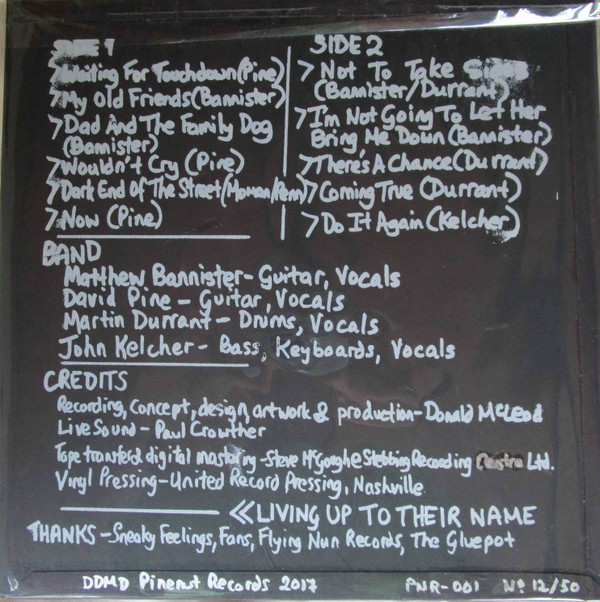 SIDE 1
> Waiting For Touchdown (Pine)
> My Old Friends (Bannister)
> Dad And The Family Dog
(Bannister)
> Wouldn't Cry (Pine)
> Dark End Of The Street (Moman/Penn)
> Now (Pine)
SIDE 2
> Not To Take
(Bannister/Durrant)
> I'm Not Going To Let Her
Bring Me Down (Bannister)
> There's A Chance (Durrant)
> Coming True (Durrant)
> Do It Again (Kelcher)
BAND
Matthew Bannister - Guitar, Vocals
David Pine - Guitar, Vocals
Martin Durrant - Drums, Vocals
John Kelcher - Bass, Keyboards, Vocals
CREDITS
Recording, concept, design, artwork & production - Donald McLeod
Live Sound - Paul Crowther
Tape transfer & digital mastering - Steve McGough @ Stebbing Recording Ltd.
Vinyl Pressing - United Record Pressing, Nashville
<< LIVING UP TO THEIR NAME
THANKS - Sneaky Feelings, Fans, Flying Nun Records, The Gluepot
DDMD Pinenut Records 2017 PNR-001 No 12/50